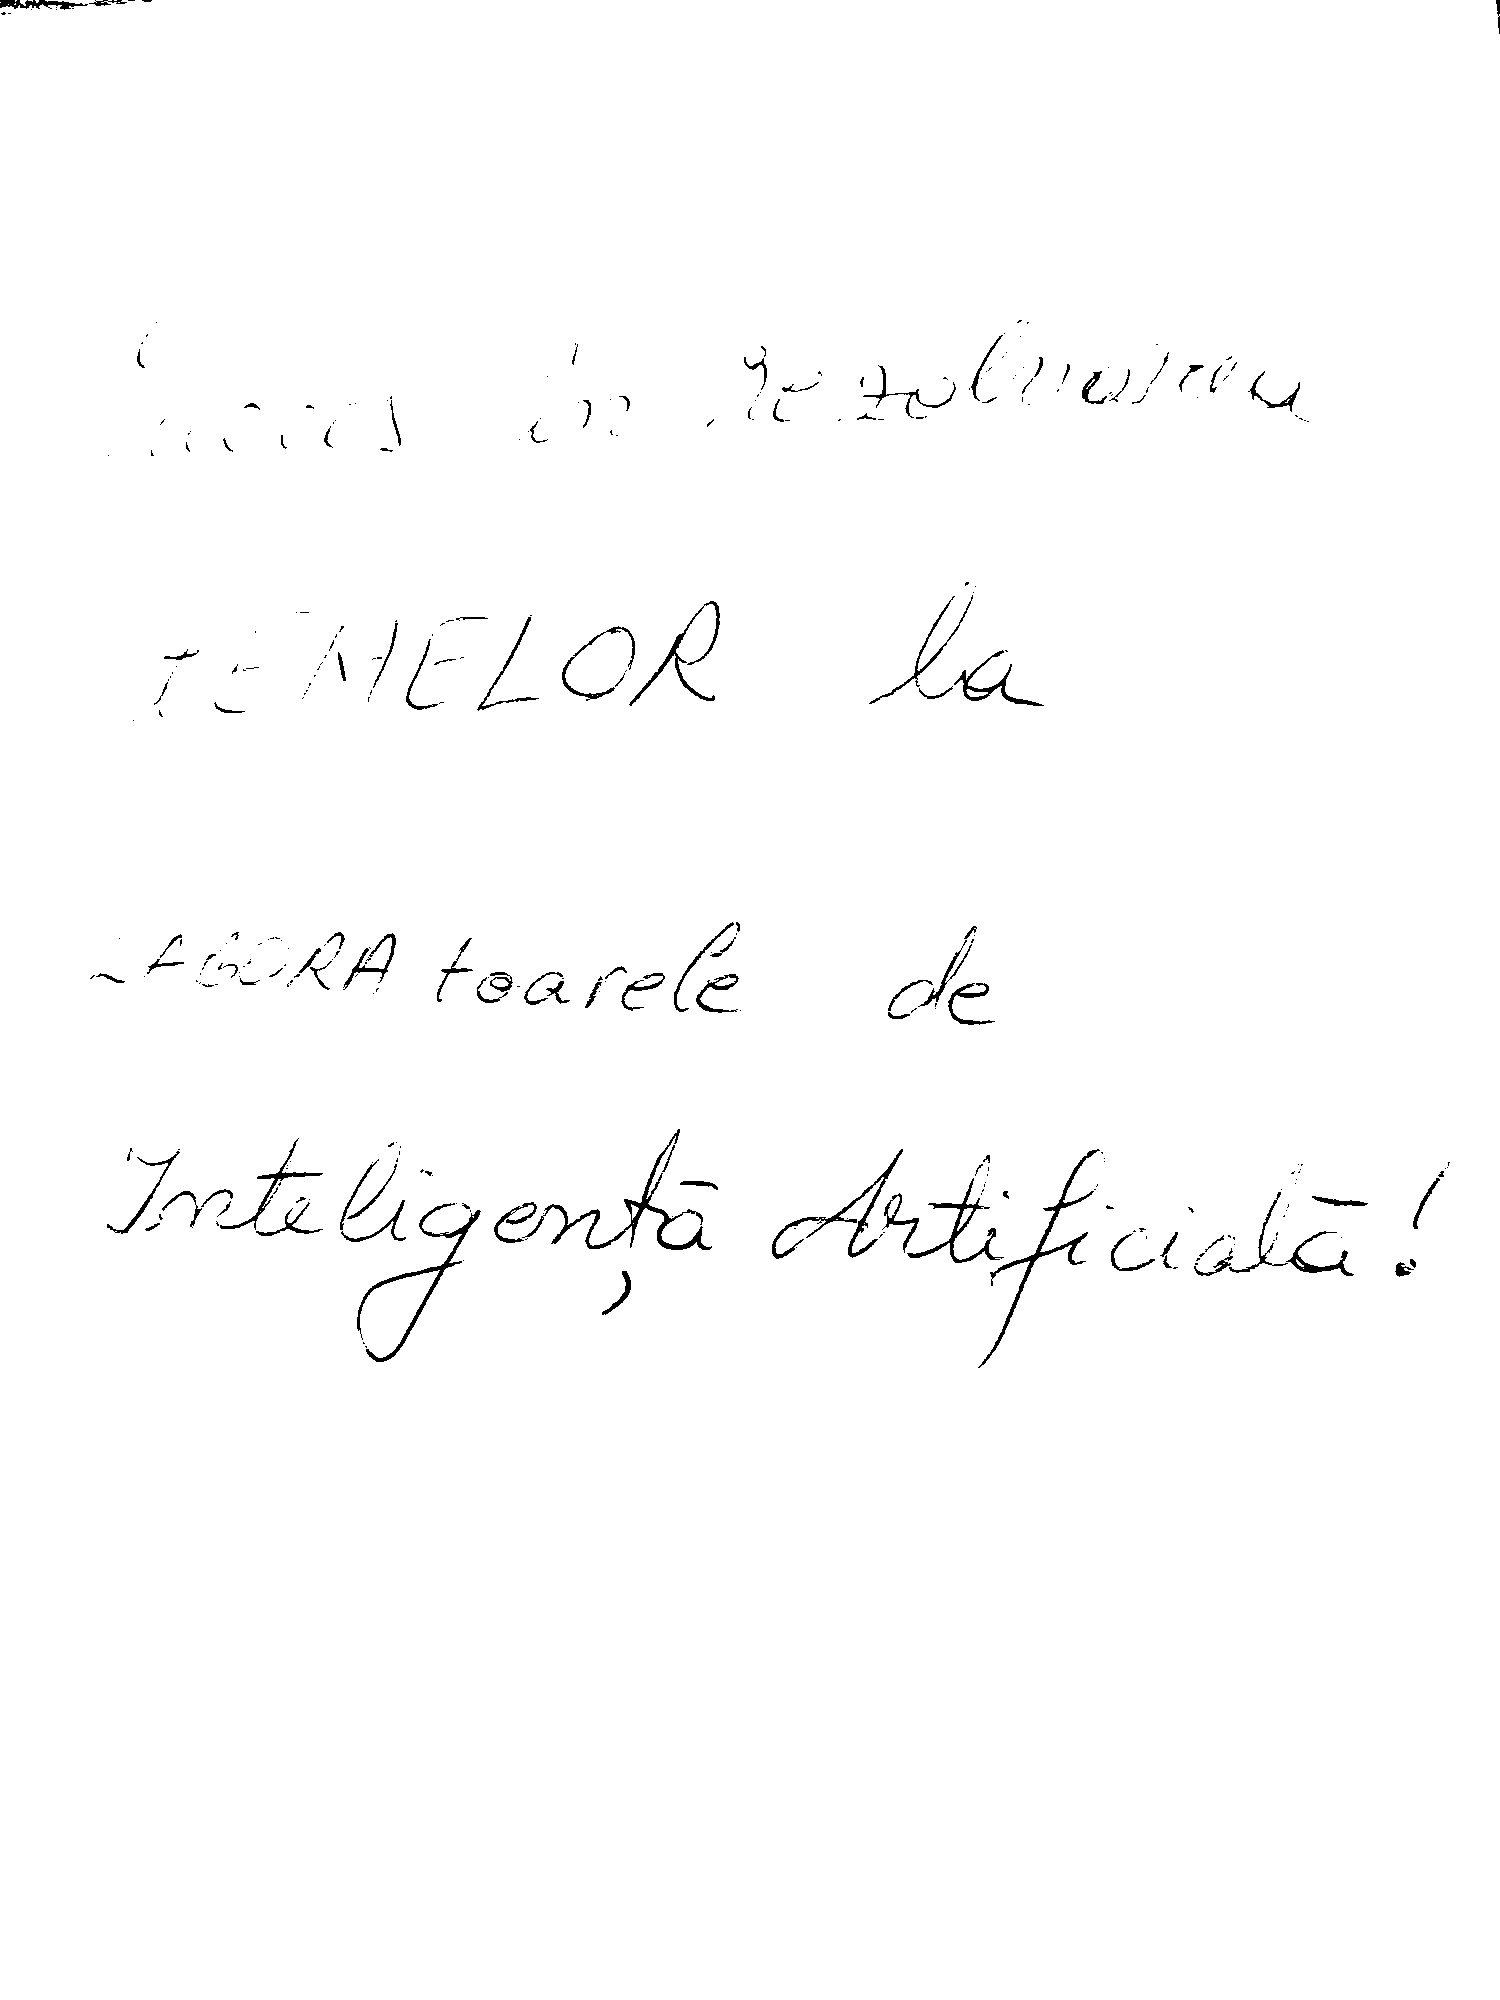 Succes în rezolvarea
TEMELOR la
LABORAtoarele de
Inteligență Artificială!